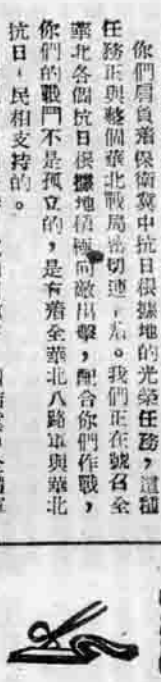 你們肩負着保衛冀中抗日根據地的光榮任務，這種
任務正與整個華北戰局密切連着。我們正在號召全
華北各個抗日根據地積極向敵出擊，配合你們作戰，
你們的戰鬥不是孤立的，是有着全華北八路軍與華北
抗日人民相支持的。